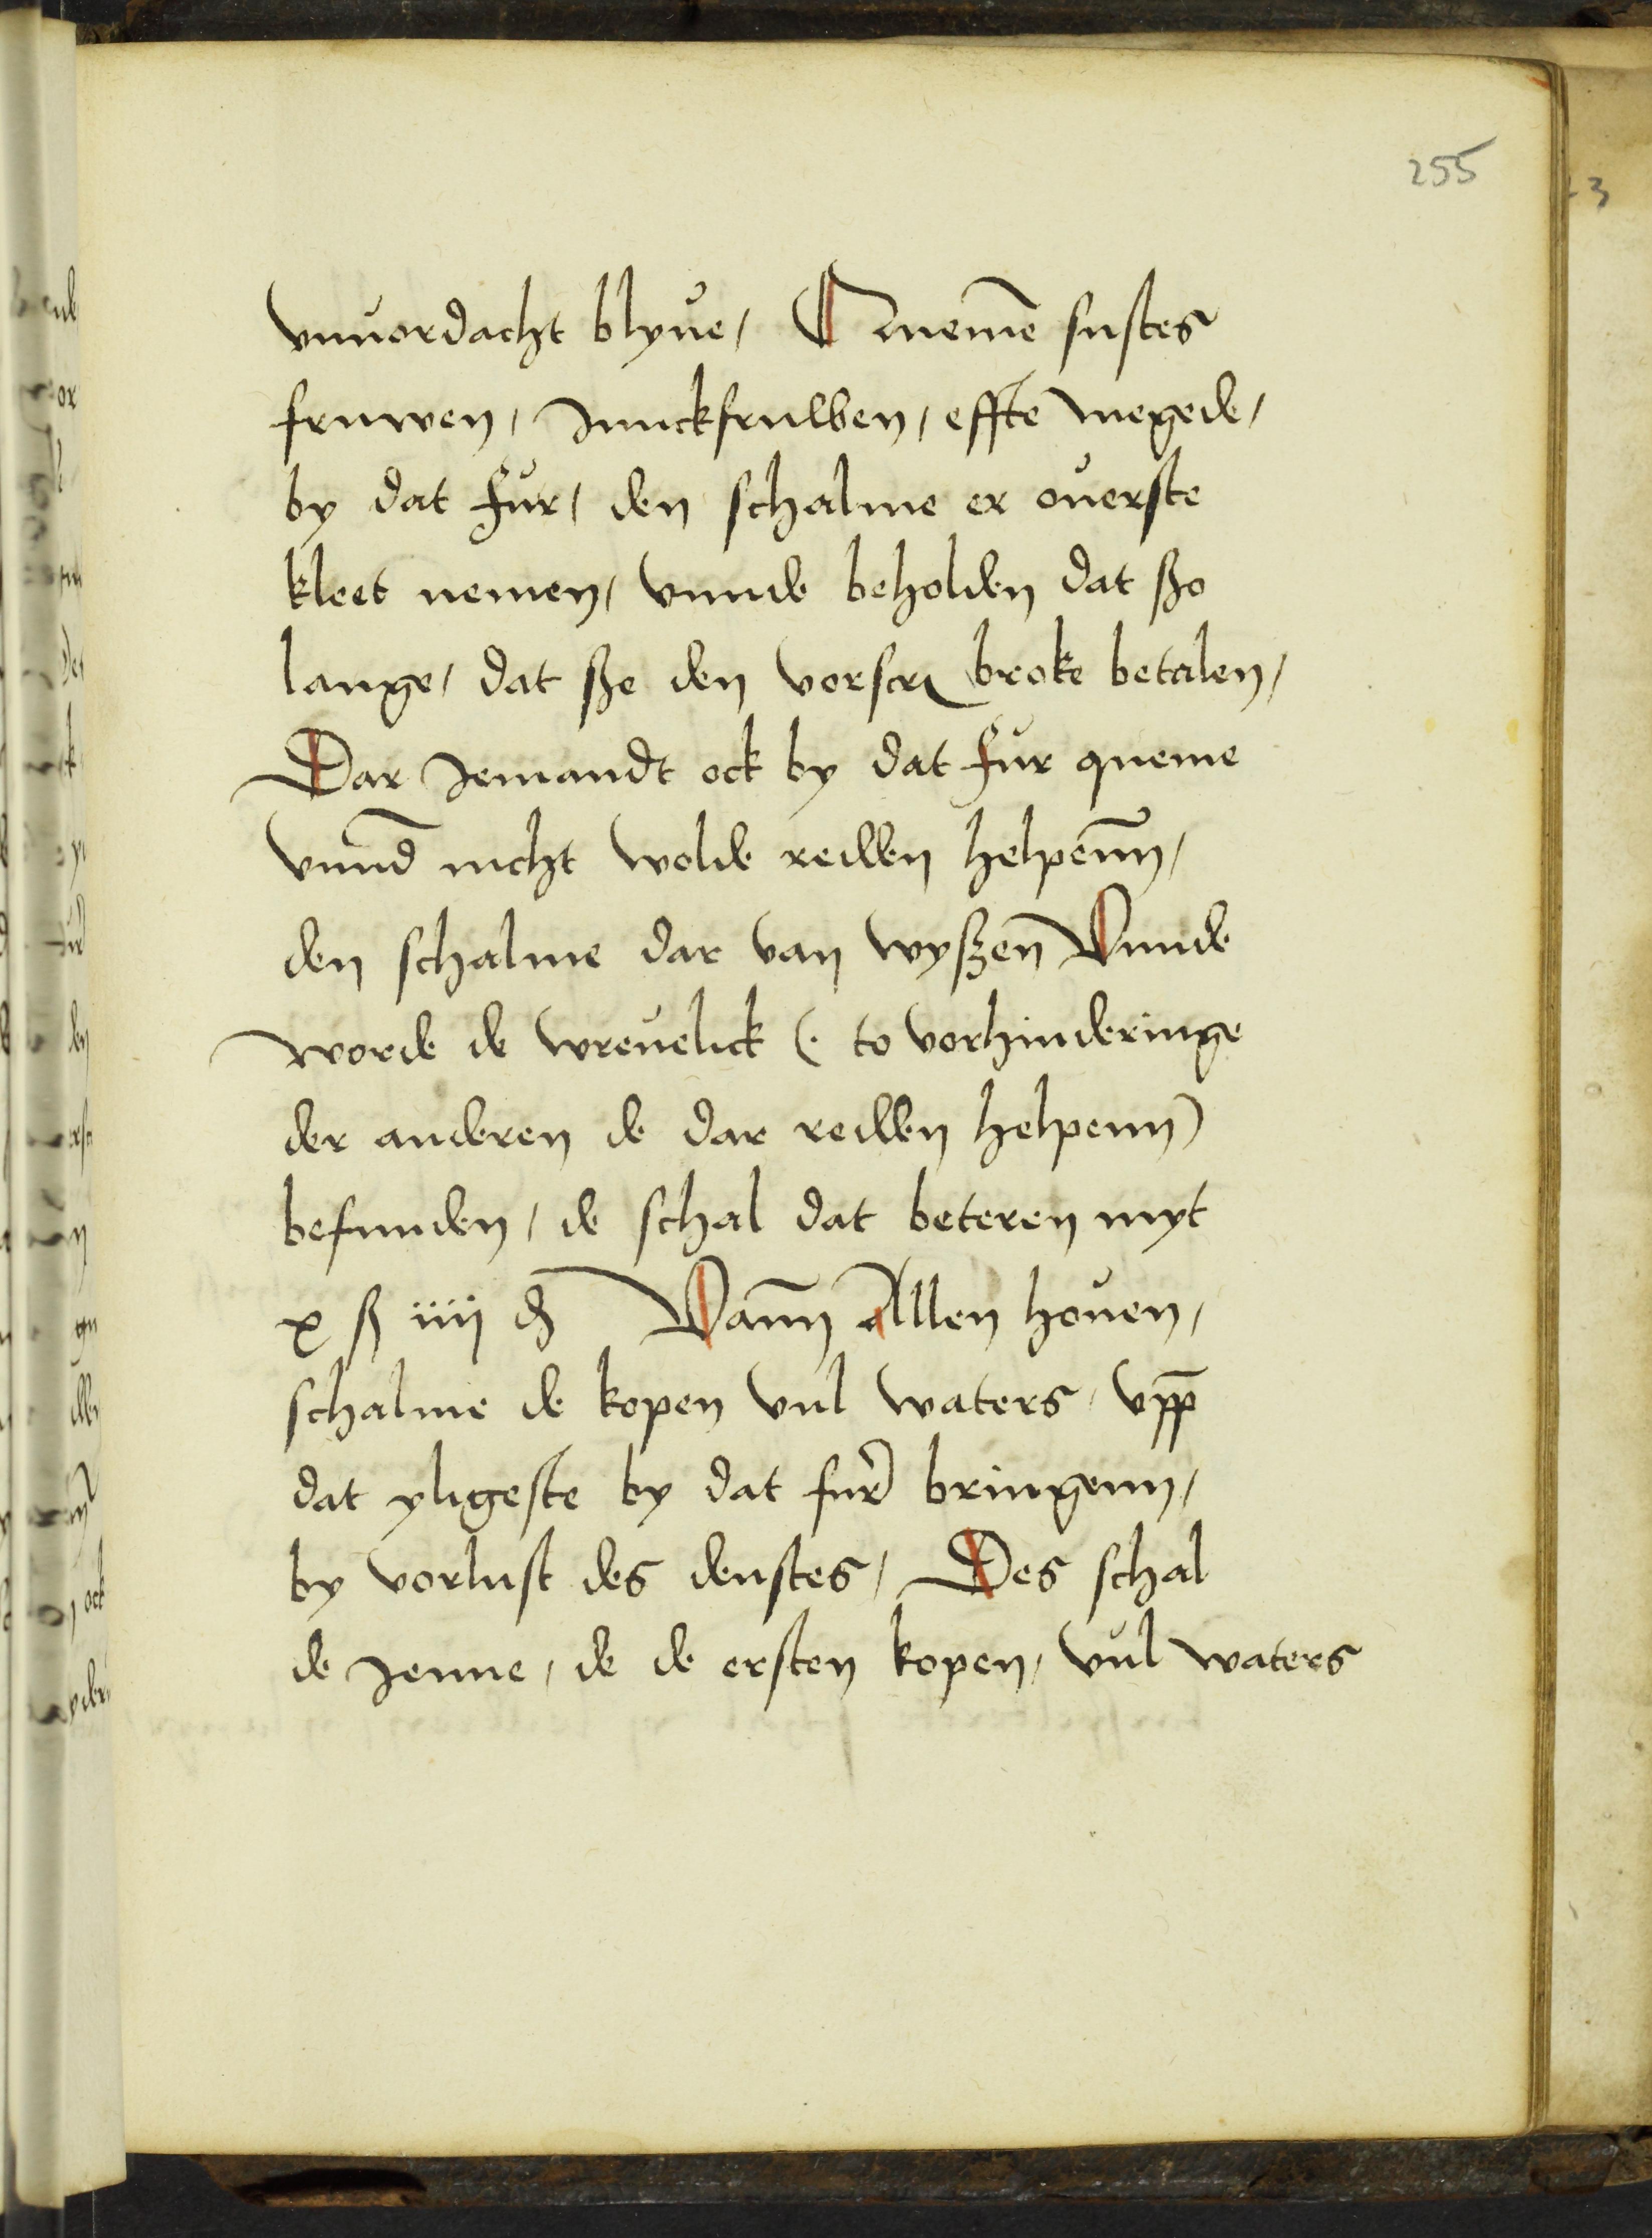 255
vnuordacht blyue / Quemen sustes
fruwen / Junckfruwen / effte megede /
by dat fur / den schalme er ouerste
kleet nemen / vnnde beholden dat sßo
lange / dat sße den vorscr broke betalen /
Dar Jemandt ock by dat fur queme
vnnd nicht wolde redden helpenn /
den schalme dar van wyßen Vnnde
worde de wreuelick (. to vorhinderinge
der anderen de dar redden helpenn)
befunden / de schal dat beteren myt
x ß iiij ₰ Vann Allen houen /
schalme de kopen vul waters / vpp
dat yligeste by dat fur bringenn /
by vorlust des denstes / Des schal
de Jenne / de de ersten kopen / vul waters